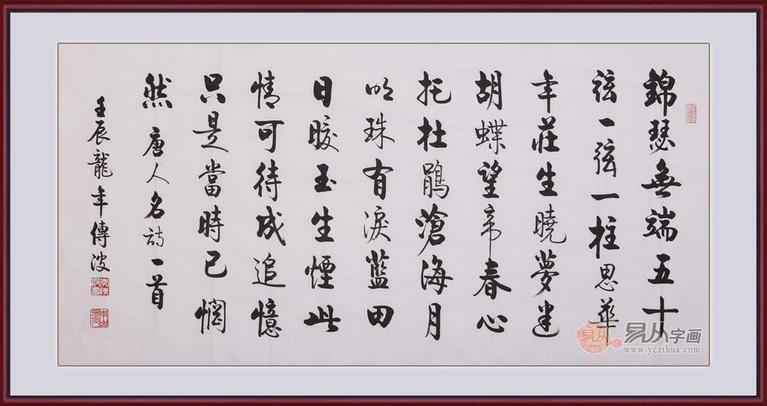 錦瑟無端五十
弦一弦一柱思華
年莊生曉夢迷
胡蝶望帝春心
托杜鵑滄海月
明珠有淚藍田
日暖玉生煙此
情可待成追憶
只是當時已惘
然 唐人名詩一首
壬辰龍年傳波
易从字画
www.yczihua.com